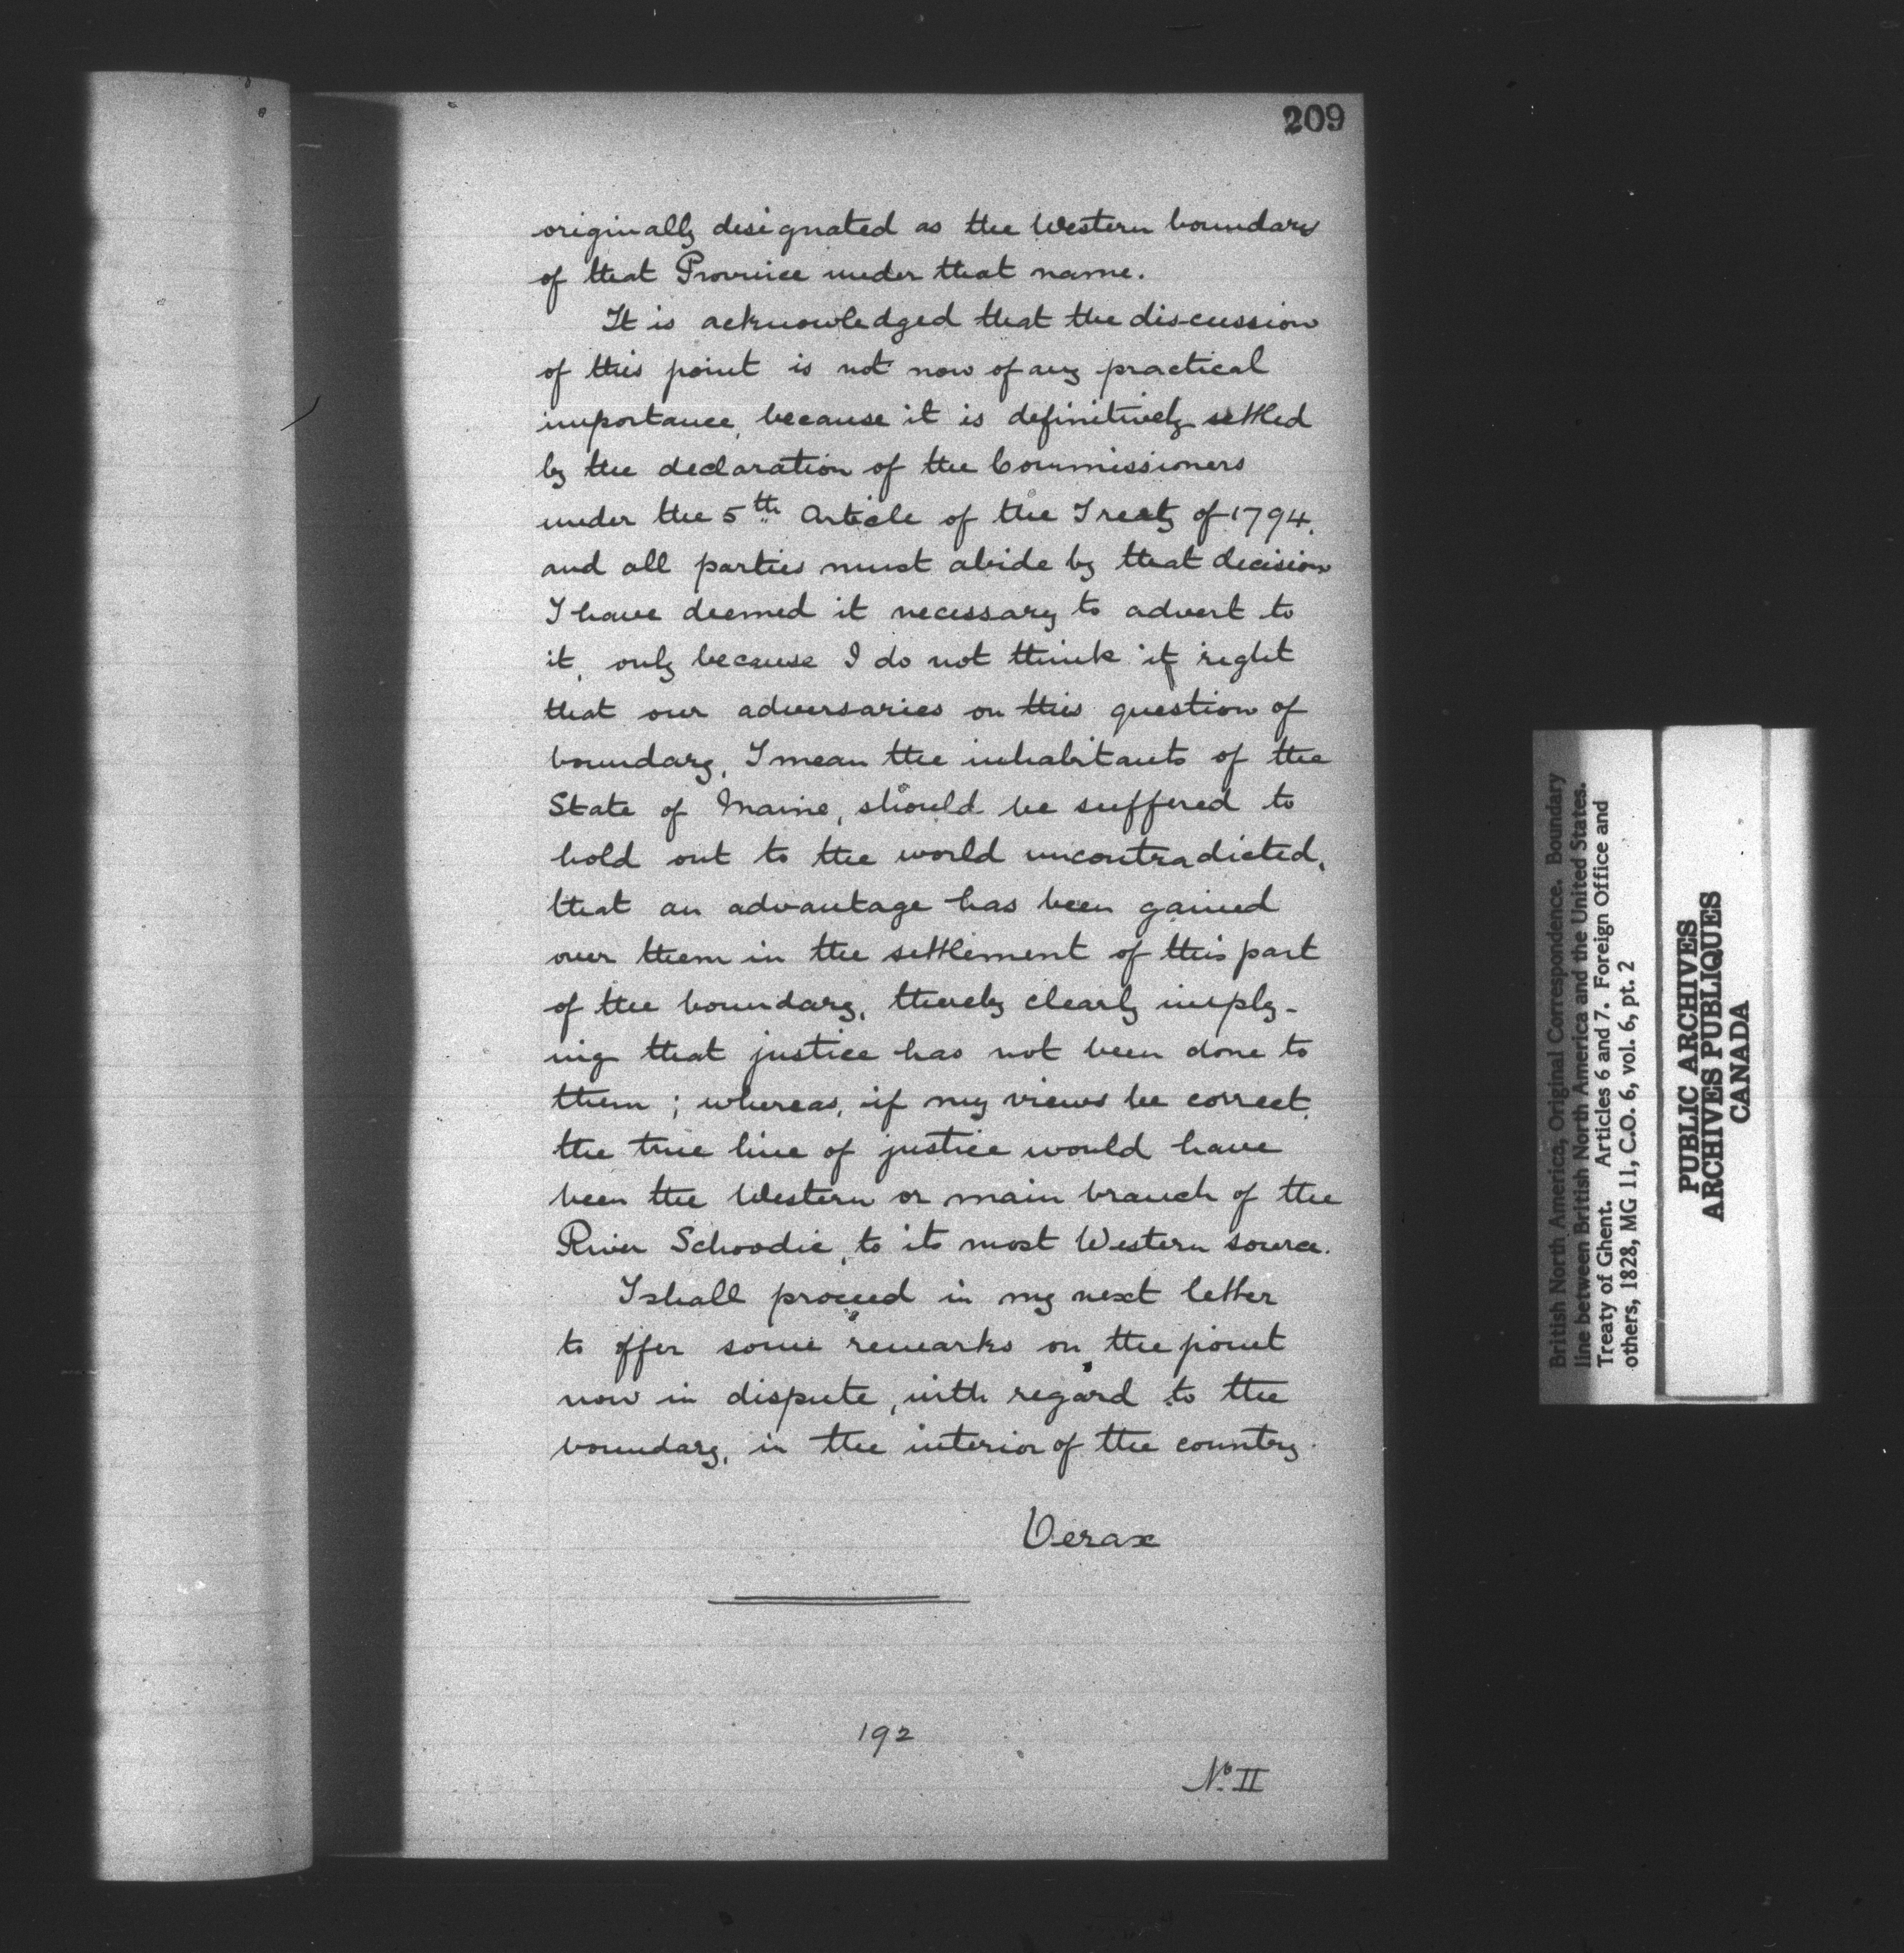 209
originally designated as the Western boundary
of that Province under that name.
It is acknowledged that the discussion
of this point is not now of any practical
importance, because it is definitively settled
by the declaration of the Commissioners
under the 5th Article of the Treaty of 1794,
and all parties must abide by that decision
I have deemed it necessary to advert to
it, only because I do not think it right
that our adversaries on this question of
boundary, I mean the inhabitants of the
State of Maine, should be suffered to
hold out to the world uncontradicted,
that an advantage has been gained
over them in the settlement of this part
of the boundary, thereby clearly imply-
ing that justice has not been done to
them; whereas, if my views be correct,
the true line of justice would have
been the Western or main branch of the
River Schoodic, to its most Western source.
I shall proceed in my next letter
to offer some remarks on the point
now in dispute, with regard to the
boundary, in the interior of the country.
Verax
192
No. II
British North America, Original Correspondence. Boundary
line between British North America and the United States.
Treaty of Ghent. Articles 6 and 7. Foreign Office and
others, 1828, MG 11, C.O. 6, vol. 6, pt. 2
PUBLIC ARCHIVES
ARCHIVES PUBLIQUES
CANADA